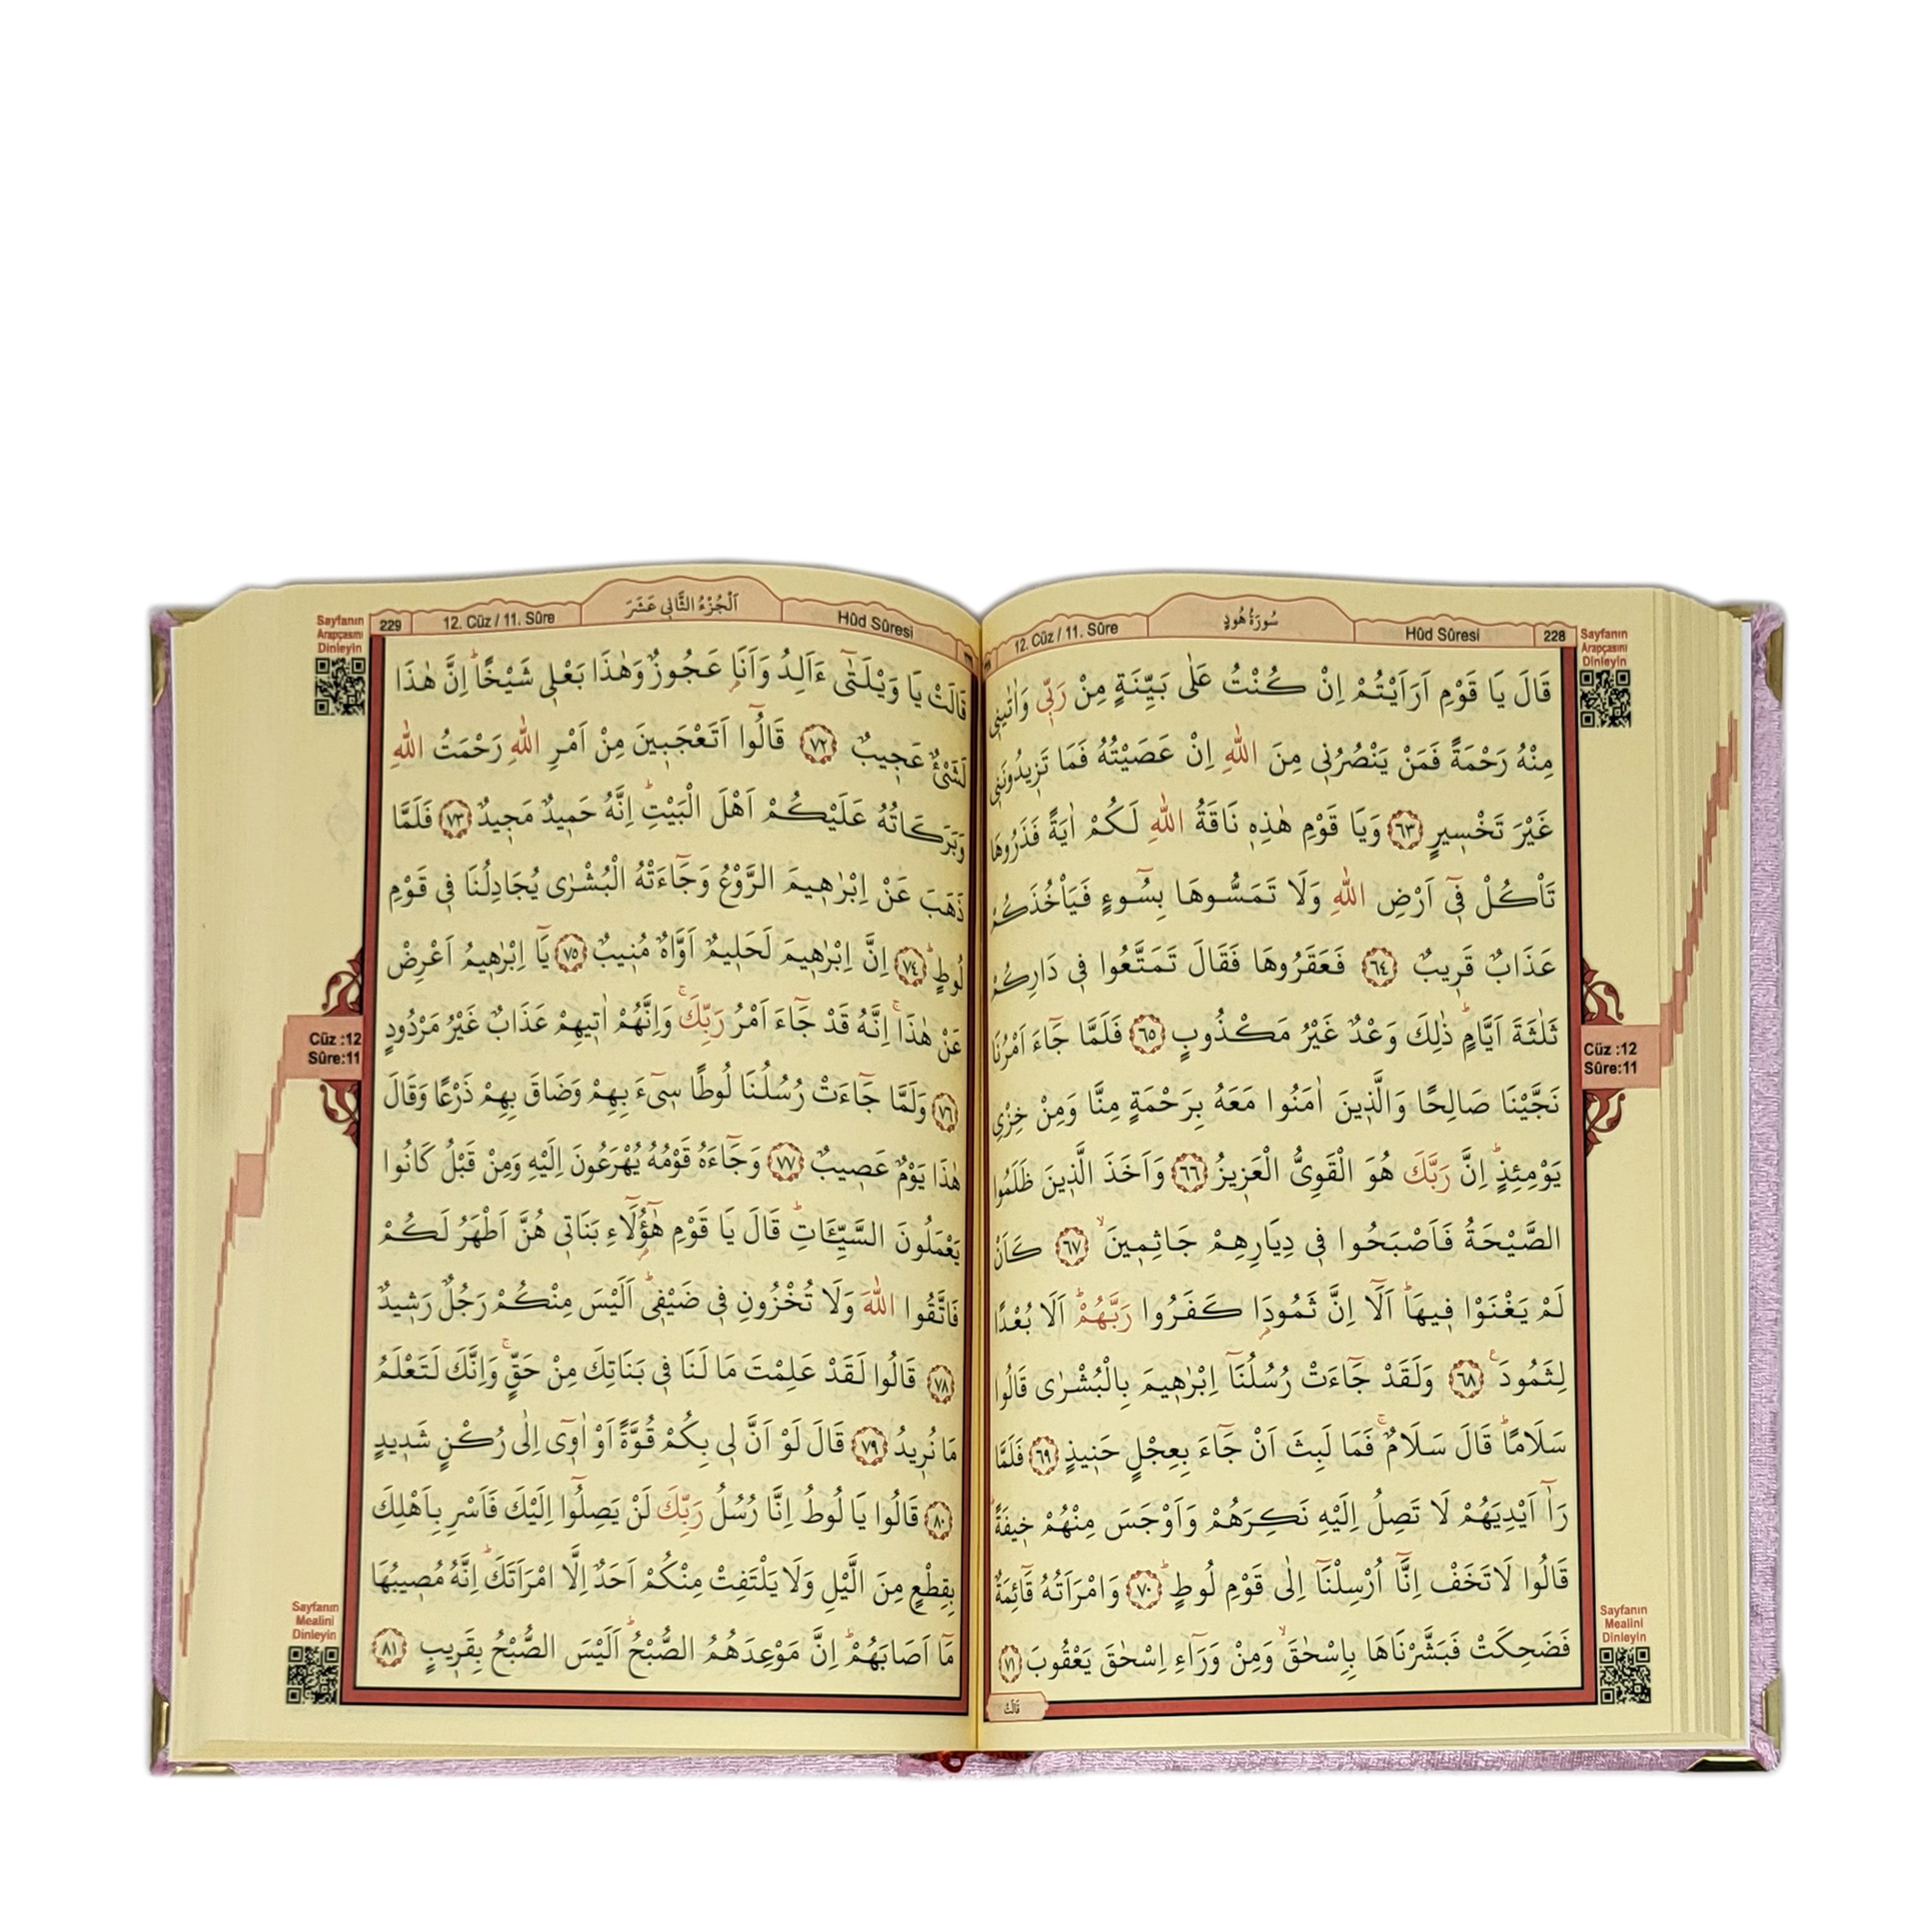 Sayfanın
Arapçasını
Dinleyin
228
Hûd Sûresi
سُورَةُ هُودٍ
12. Cüz / 11. Sûre
قَالَ يَا قَوْمِ اَرَاَيْتُمْ اِنْ كُنْتُ عَلٰى بَيِّنَةٍ مِنْ رَبّٖي وَاٰتٰينٖي
مِنْهُ رَحْمَةً فَمَنْ يَنْصُرُنٖي مِنَ اللّٰهِ اِنْ عَصَيْتُهُ فَمَا تَزٖيدُونَنٖي
غَيْرَ تَخْسٖيرٍ ﴿٦٣﴾ وَيَا قَوْمِ هٰذِهٖ نَاقَةُ اللّٰهِ لَكُمْ اٰيَةً فَذَرُوهَا
تَأْكُلْ فٖٓي اَرْضِ اللّٰهِ وَلَا تَمَسُّوهَا بِسُٓوءٍ فَيَأْخُذَكُمْ
عَذَابٌ قَرٖيبٌ ﴿٦٤﴾ فَعَقَرُوهَا فَقَالَ تَمَتَّعُوا فٖي دَارِكُمْ
ثَلٰثَةَ اَيَّامٍؕ ذٰلِكَ وَعْدٌ غَيْرُ مَكْذُوبٍ ﴿٦٥﴾ فَلَمَّا جَٓاءَ اَمْرُنَا
نَجَّيْنَا صَالِحًا وَالَّذٖينَ اٰمَنُوا مَعَهُ بِرَحْمَةٍ مِنَّا وَمِنْ خِزْيِ
يَوْمِئِذٍؕ اِنَّ رَبَّكَ هُوَ الْقَوِيُّ الْعَزٖيزُ ﴿٦٦﴾ وَاَخَذَ الَّذٖينَ ظَلَمُوا
الصَّيْحَةُ فَاَصْبَحُوا فٖي دِيَارِهِمْ جَاثِمٖينَۙ ﴿٦٧﴾ كَاَنْ
لَمْ يَغْنَوْا فٖيهَاؕ اَلَٓا اِنَّ ثَمُودَا كَفَرُوا رَبَّهُمْؕ اَلَا بُعْدًا
لِثَمُودَࣖ ﴿٦٨﴾ وَلَقَدْ جَٓاءَتْ رُسُلُنَٓا اِبْرٰهٖيمَ بِالْبُشْرٰى قَالُوا
سَلَامًاؕ قَالَ سَلَامٌۚ فَمَا لَبِثَ اَنْ جَٓاءَ بِعِجْلٍ حَنٖيذٍ ﴿٦٩﴾ فَلَمَّا
رَآٰ اَيْدِيَهُمْ لَا تَصِلُ اِلَيْهِ نَكِرَهُمْ وَاَوْجَسَ مِنْهُمْ خٖيفَةًؕ
قَالُوا لَا تَخَفْ اِنَّٓا اُرْسِلْنَٓا اِلٰى قَوْمِ لُوطٍؕ ﴿٧٠﴾ وَامْرَاَتُهُ قَٓائِمَةٌ
فَضَحِكَتْ فَبَشَّرْنَاهَا بِاِسْحٰقَۙ وَمِنْ وَرَٓاءِ اِسْحٰقَ يَعْقُوبَ ﴿٧١﴾
قَالَتْ
Cüz :12
Sûre:11
Sayfanın
Mealini
Dinleyin
Hûd Sûresi
اَلْجُزْءُ الثَّانٖي عَشَرَ
12. Cüz / 11. Sûre
229
Sayfanın
Arapçasını
Dinleyin
قَالَتْ يَا وَيْلَتٰٓى ءَاَلِدُ وَاَنَا۬ عَجُوزٌ وَهٰذَا بَعْلٖي شَيْخًاؕ اِنَّ هٰذَا
لَشَيْءٌ عَجٖيبٌ ﴿٧٢﴾ قَالُٓوا اَتَعْجَبٖينَ مِنْ اَمْرِ اللّٰهِ رَحْمَتُ اللّٰهِ
وَبَرَكَاتُهُ عَلَيْكُمْ اَهْلَ الْبَيْتِؕ اِنَّهُ حَمٖيدٌ مَجٖيدٌ ﴿٧٣﴾ فَلَمَّا
ذَهَبَ عَنْ اِبْرٰهٖيمَ الرَّوْعُ وَجَٓاءَتْهُ الْبُشْرٰى يُجَادِلُنَا فٖي قَوْمِ
لُوطٍؕ ﴿٧٤﴾ اِنَّ اِبْرٰهٖيمَ لَحَلٖيمٌ اَوَّاهٌ مُنٖيبٌ ﴿٧٥﴾ يَٓا اِبْرٰهٖيمُ اَعْرِضْ
عَنْ هٰذَاۚ اِنَّهُ قَدْ جَٓاءَ اَمْرُ رَبِّكَۚ وَاِنَّهُمْ اٰتٖيهِمْ عَذَابٌ غَيْرُ مَرْدُودٍ
﴿٧٦﴾ وَلَمَّا جَٓاءَتْ رُسُلُنَا لُوطًا سٖٓيءَ بِهِمْ وَضَاقَ بِهِمْ ذَرْعًا وَقَالَ
هٰذَا يَوْمٌ عَصٖيبٌ ﴿٧٧﴾ وَجَٓاءَهُ قَوْمُهُ يُهْرَعُونَ اِلَيْهِ وَمِنْ قَبْلُ كَانُوا
يَعْمَلُونَ السَّيِّـَٔاتِؕ قَالَ يَا قَوْمِ هٰٓؤُ۬لَٓاءِ بَنَاتٖي هُنَّ اَطْهَرُ لَكُمْ
فَاتَّقُوا اللّٰهَ وَلَا تُخْزُونِ فٖي ضَيْفٖيؕ اَلَيْسَ مِنْكُمْ رَجُلٌ رَشٖيدٌ
﴿٧٨﴾ قَالُوا لَقَدْ عَلِمْتَ مَا لَنَا فٖي بَنَاتِكَ مِنْ حَقٍّۚ وَاِنَّكَ لَتَعْلَمُ
مَا نُرٖيدُ ﴿٧٩﴾ قَالَ لَوْ اَنَّ لٖي بِكُمْ قُوَّةً اَوْ اٰوٖٓي اِلٰى رُكْنٍ شَدٖيدٍ
﴿٨٠﴾ قَالُوا يَا لُوطُ اِنَّا رُسُلُ رَبِّكَ لَنْ يَصِلُٓوا اِلَيْكَ فَاَسْرِ بِاَهْلِكَ
بِقِطْعٍ مِنَ الَّيْلِ وَلَا يَلْتَفِتْ مِنْكُمْ اَحَدٌ اِلَّا امْرَاَتَكَؕ اِنَّهُ مُصٖيبُهَا
مَٓا اَصَابَهُمْؕ اِنَّ مَوْعِدَهُمُ الصُّبْحُؕ اَلَيْسَ الصُّبْحُ بِقَرٖيبٍ ﴿٨١﴾
Cüz :12
Sûre:11
Sayfanın
Mealini
Dinleyin